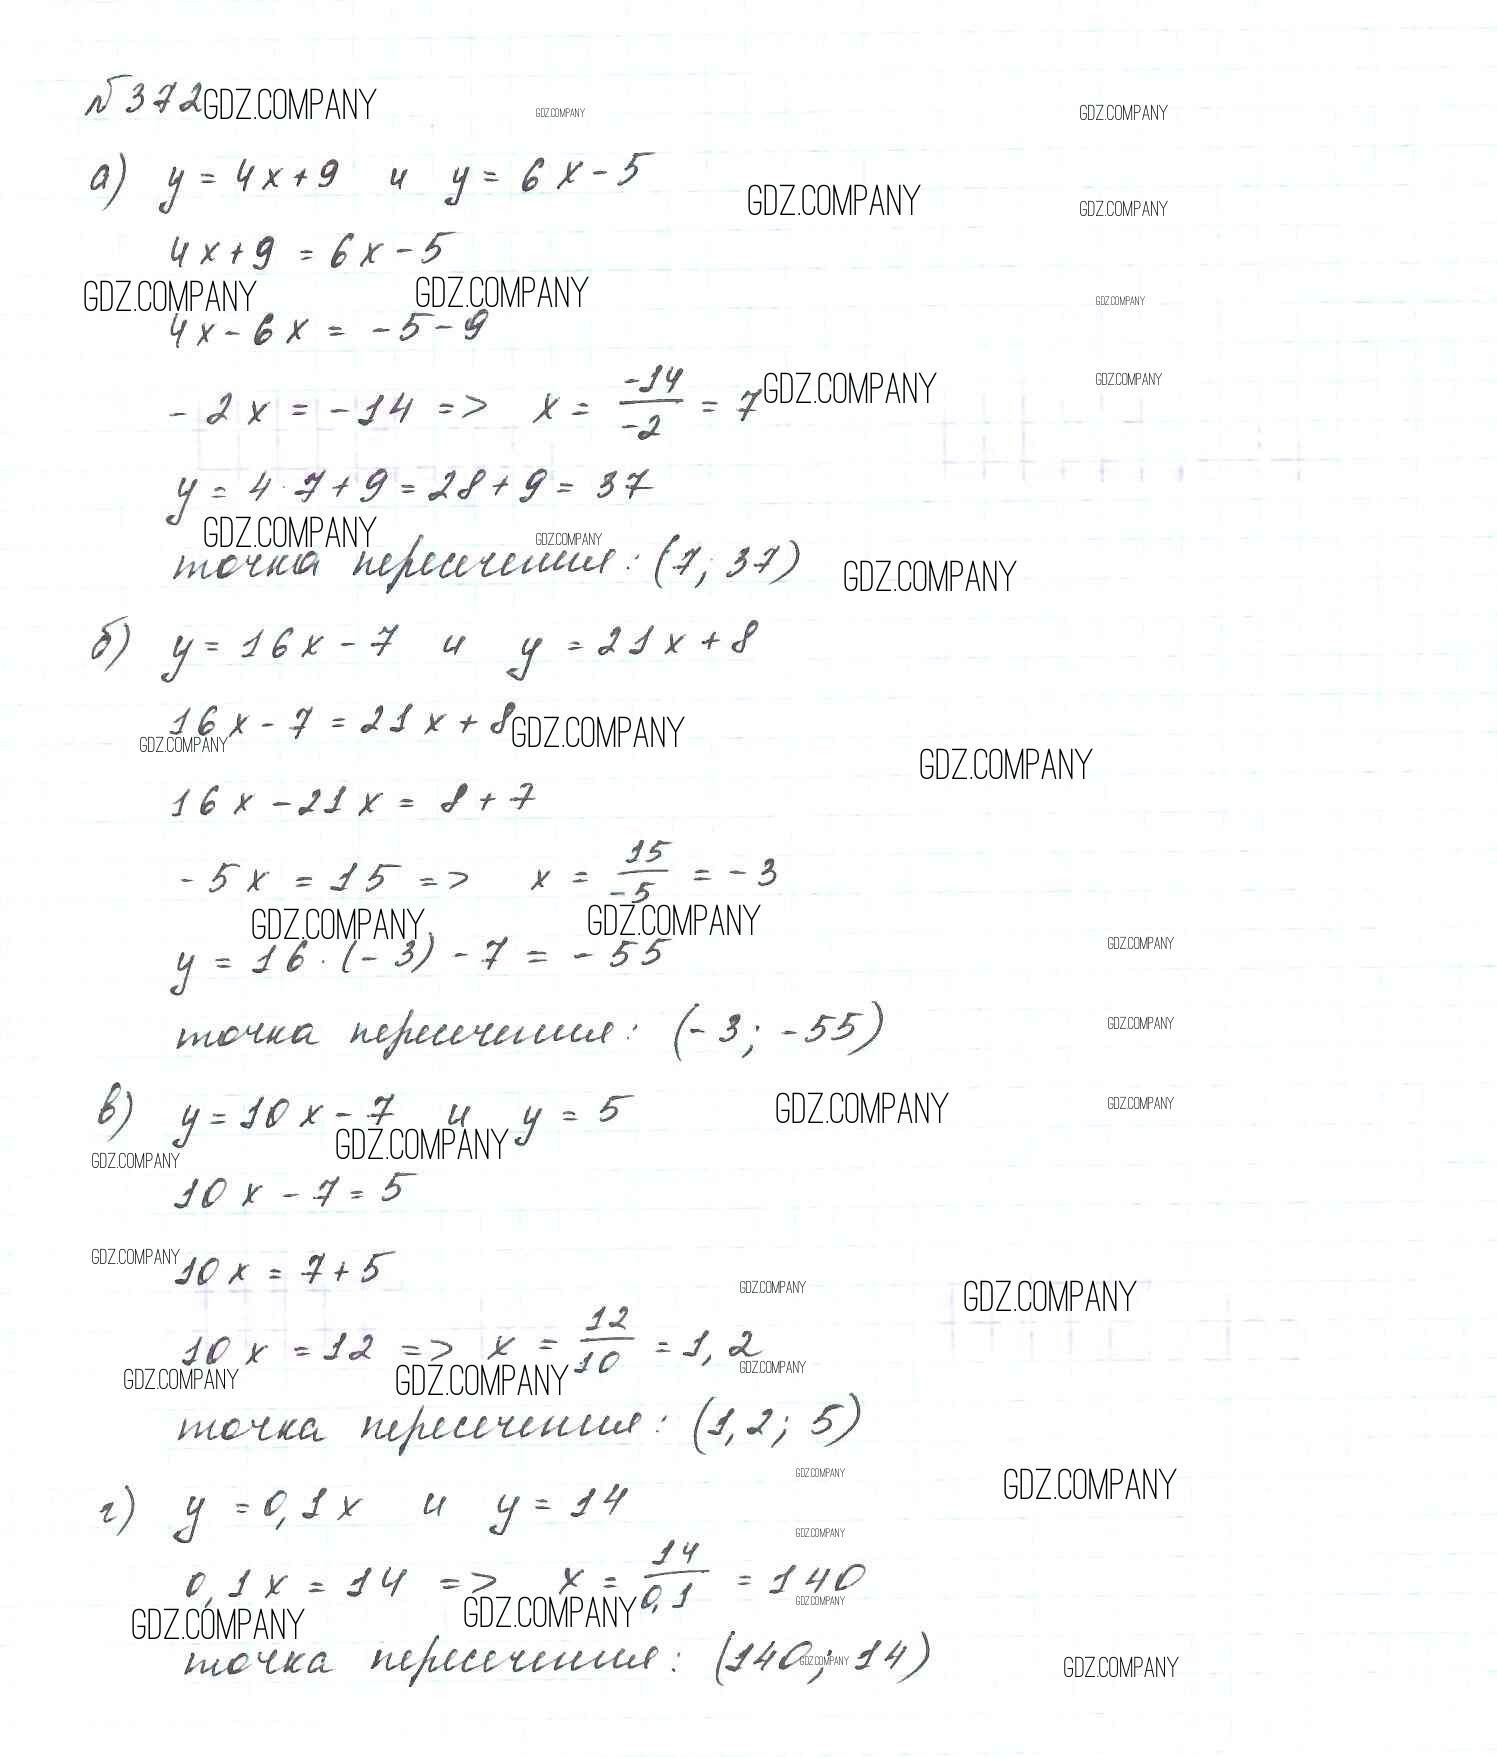 №372 GDZ.COMPANY GDZ.COMPANY GDZ.COMPANY
а) y = 4x + 9 и y = 6x - 5
GDZ.COMPANY GDZ.COMPANY
4x + 9 = 6x - 5
GDZ.COMPANY GDZ.COMPANY GDZ.COMPANY
4x - 6x = -5 - 9
-2x = -14 => x = -14/-2 = 7 GDZ.COMPANY GDZ.COMPANY
y = 4 · 7 + 9 = 28 + 9 = 37
GDZ.COMPANY GDZ.COMPANY
точка пересечения: (7; 37) GDZ.COMPANY
б) y = 16x - 7 и y = 21x + 8
16x - 7 = 21x + 8 GDZ.COMPANY
GDZ.COMPANY GDZ.COMPANY
16x - 21x = 8 + 7
-5x = 15 => x = 15/-5 = -3
GDZ.COMPANY GDZ.COMPANY GDZ.COMPANY
y = 16 · (-3) - 7 = -55
точка пересечения: (-3; -55) GDZ.COMPANY
в) y = 10x - 7 и y = 5 GDZ.COMPANY GDZ.COMPANY
GDZ.COMPANY GDZ.COMPANY
10x - 7 = 5
GDZ.COMPANY
10x = 7 + 5
GDZ.COMPANY GDZ.COMPANY
10x = 12 => x = 12/10 = 1,2
GDZ.COMPANY GDZ.COMPANY GDZ.COMPANY
точка пересечения: (1,2; 5)
GDZ.COMPANY GDZ.COMPANY
г) y = 0,1x и y = 14
GDZ.COMPANY
0,1x = 14 => x = 14/0,1 = 140
GDZ.COMPANY GDZ.COMPANY GDZ.COMPANY
точка пересечения: (140; 14)
GDZ.COMPANY GDZ.COMPANY